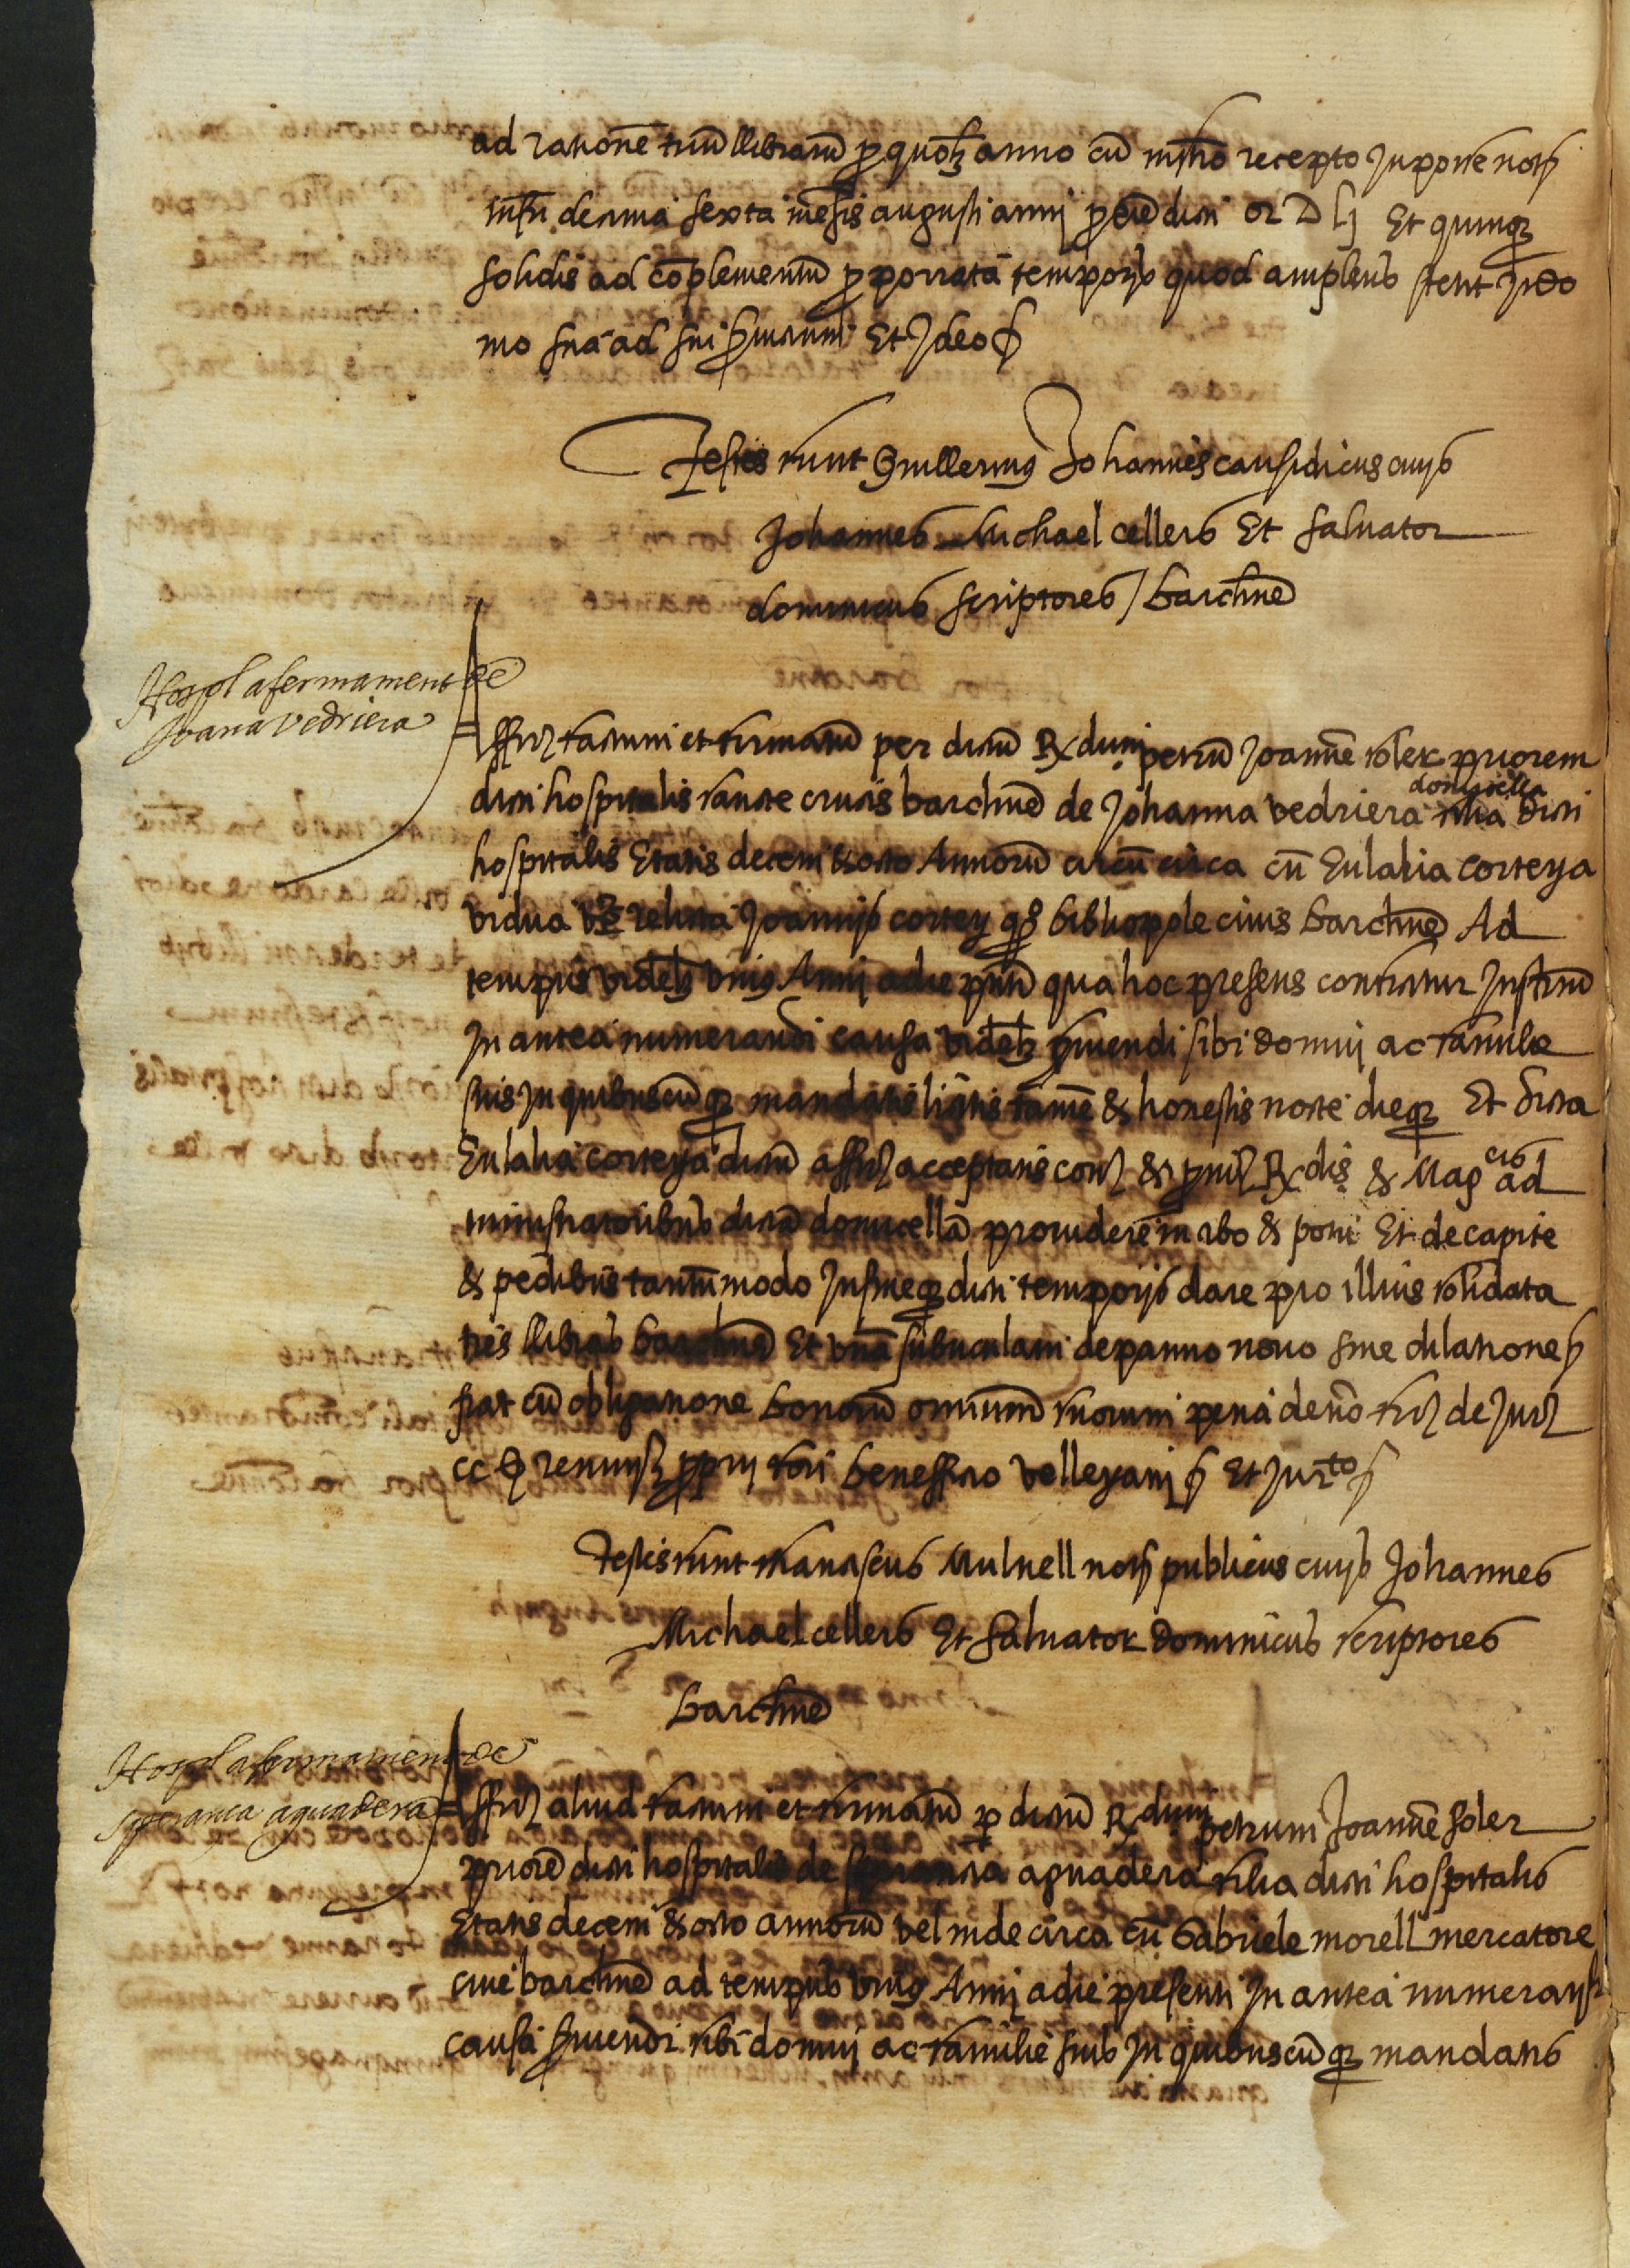 ad rationē triũ llibrarũ ꝑ quoƚꝫ anno cũ instr̃o recepto in posse notͥ
infri decima sexta mēsis augusti anni ꝓxie dicti M D Lj Et quinqꝫ
solidis ad cōplementũ ꝓ porrata temporis quod amplius stetit in do
mo sua ad sui ẜuitium Et Ideo &c
Testes sunt Guillermus Johannes causidicus civis
Johannes Michael cellers Et saluator
dominicus scriptores / barchñe
Hospl afermament de
Joana Vedriera
Affirꝫ factum et firmatũ per dictũ Rx dum petrũ Joannē soler priorem
dicti hospitalis sancte crucis barchñe de Johanna vedriera donzella filia dicti
hospitalis Etatis decem & octo Annorũ circũ circa cũ Eulalia corteya
vidua vx̃ relicta Joannis cortey qº bibliopole civis barchñe Ad
tempus videlꝫ unius Anni a die pñti qua hoc presens conficitur Instrm̃
In antea numerandi causa videlꝫ ẜuiendi sibi domui ac familie
suis In quibuscũqꝫ mandatis licitis tamē & honestis nocte dieqꝫ Et dicta
Eulalia corteya dictũ affirꝫ acceptans conꝫ & ꝓmiꝫ Rx dis & Magcis ad
ministratoribus dictã domicellã prouidere in cibo & potu Et de capite
& pedibus tantũmodo In fineqꝫ dicti temporis dare pro illius solidata
tres llibras barchñe Et vnã subuculam de panno nouo sine dilatione &c
fiat cũ obligatione bonorũ omniũ suorum pena de nõ firꝫ de Jurꝫ
CC & renunꝫ ꝓprij fori beneficio velleyani &c Et Jurto &c
Testes sunt franciscus Mulnell notͥ publicus civis Johannes
Michael cellers Et saluator dominicus scriptores
barchñe
Hospl afermament de
speranca aguadera
Affirꝫ aliud factum et firmatũ ꝑ dictũ Rx dum petrum Joannē soler
priorē dicti hospitalis de speransa aguadera filia dicti hospitalis
Etatis decem & octo annorũ vel inde circa cũ Gabriele morell mercatore
cive barchñe ad tempus unius Anni a die presenti In antea numerandi
causa ẜuiendi sibi domui ac familie suis In quibuscũqꝫ mandatis